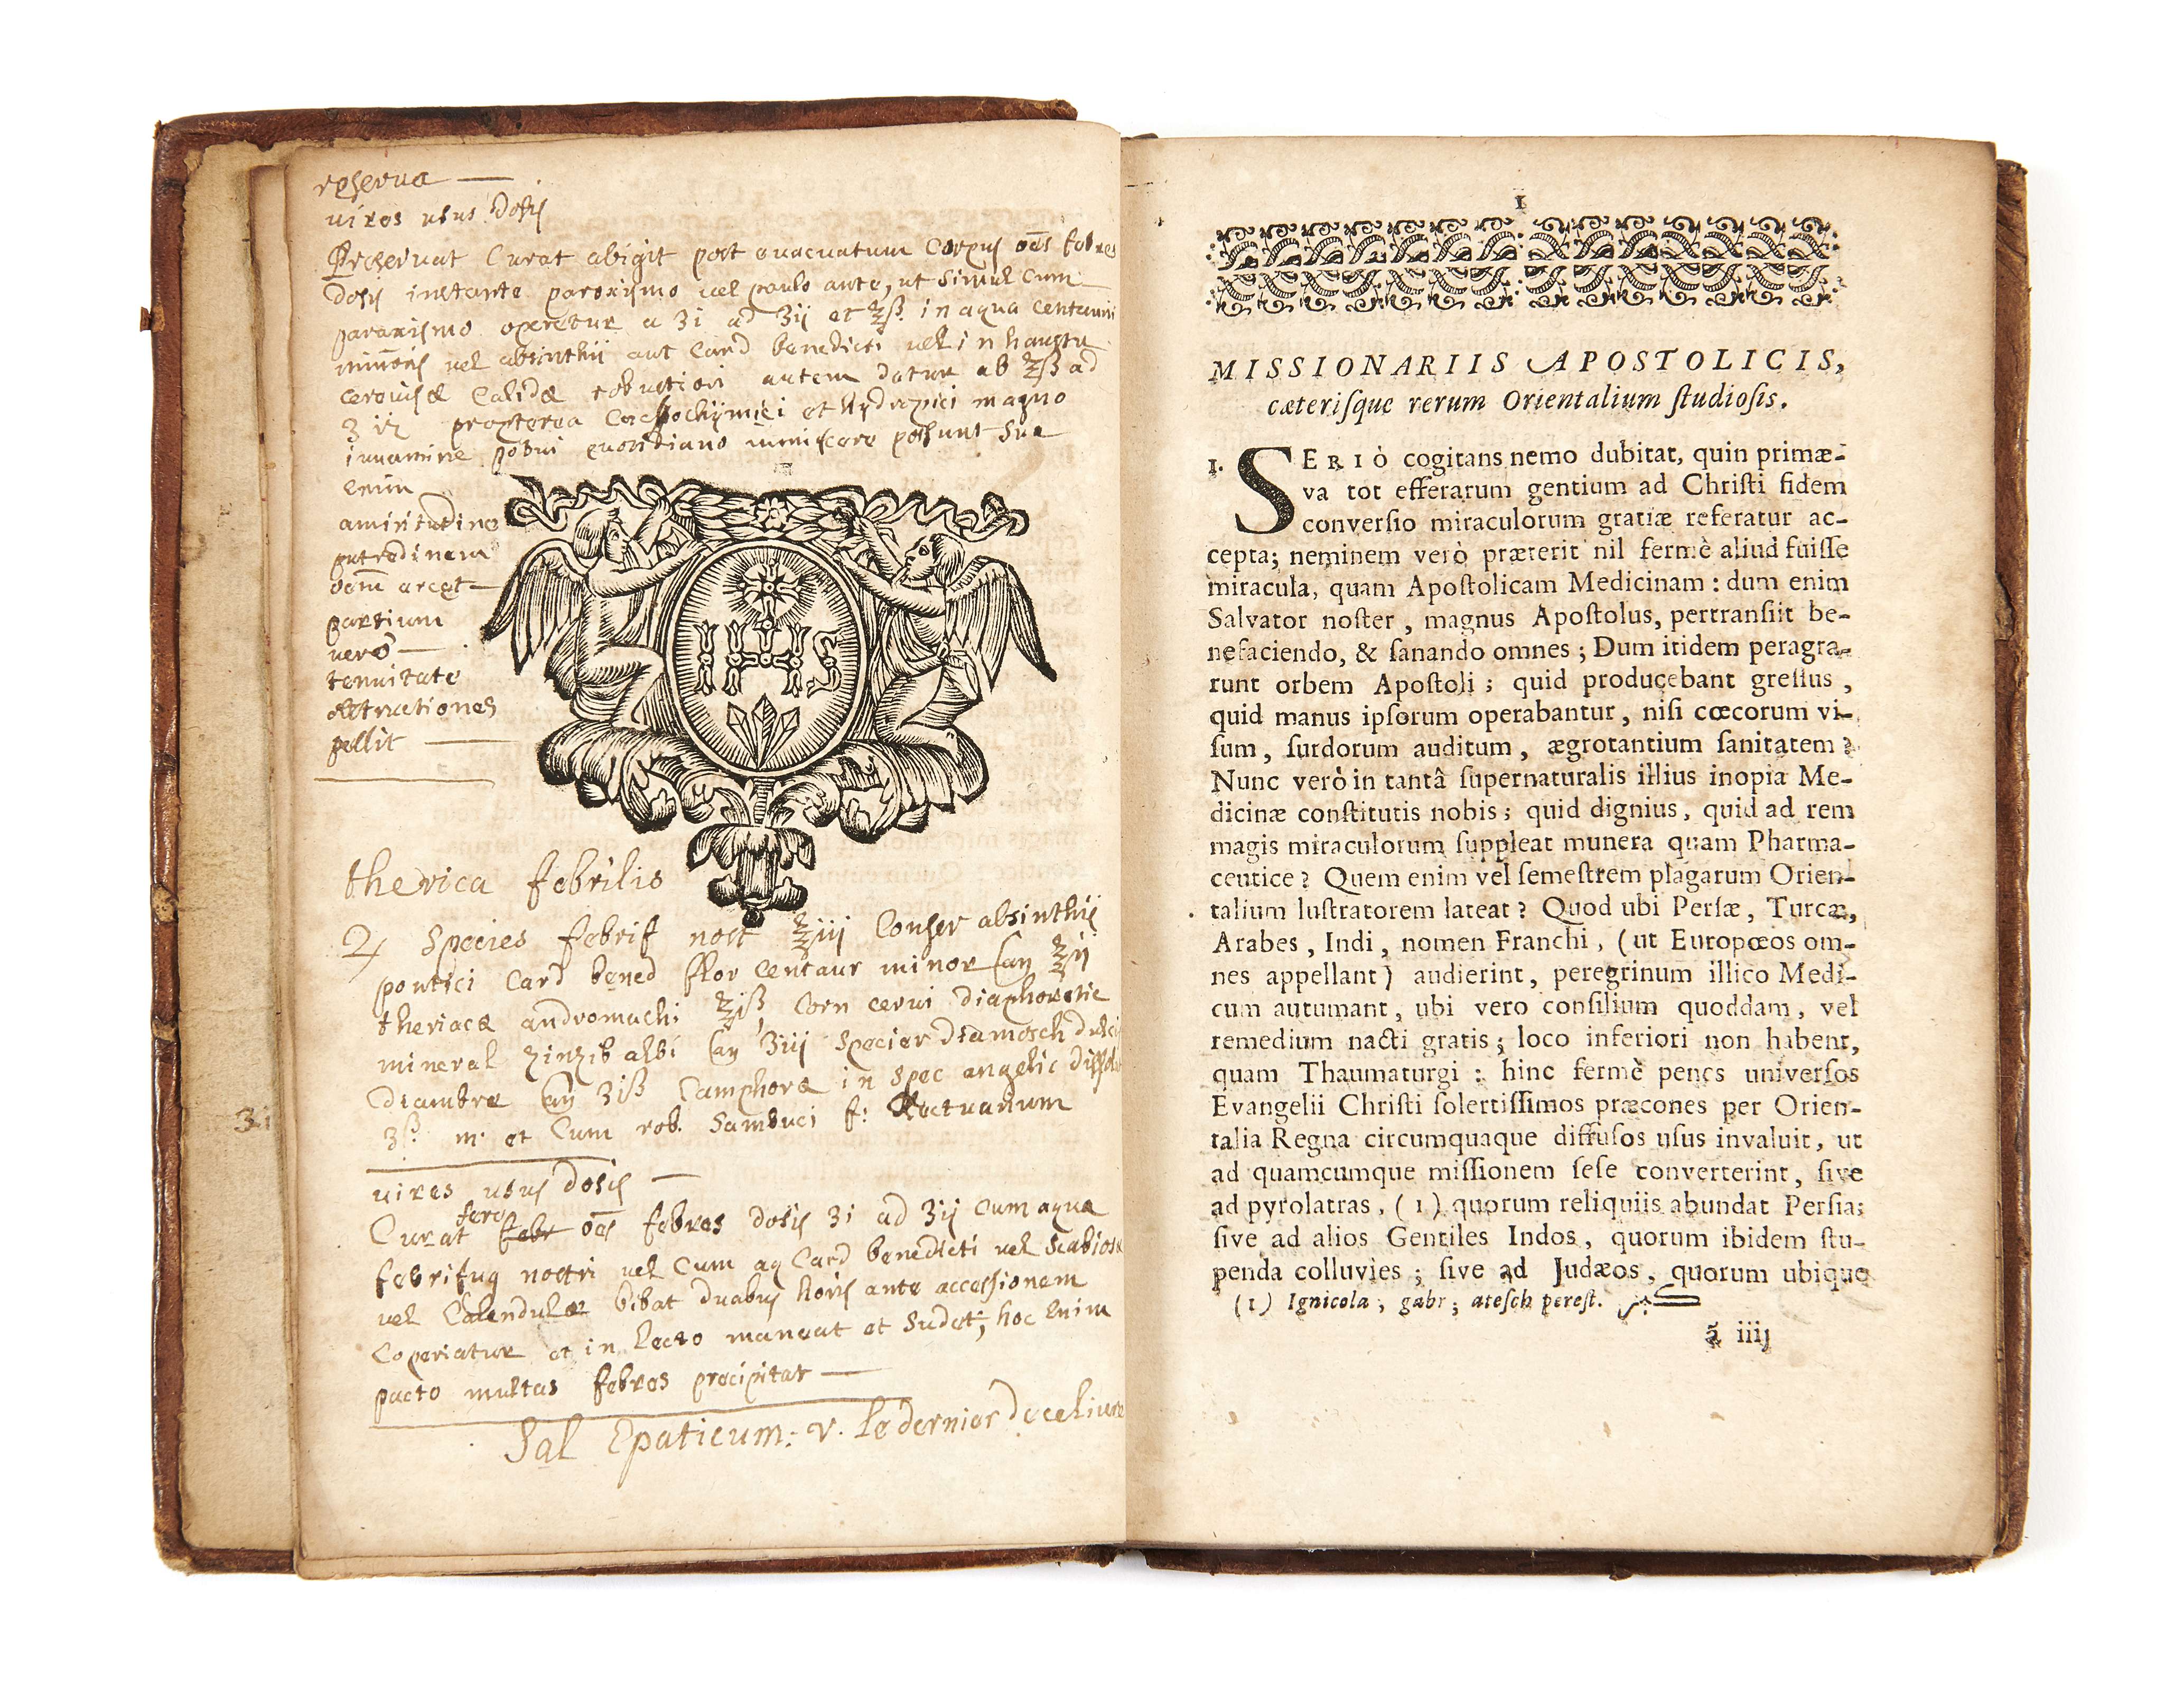 reserua —
uires usus dosis
Preseruat Curat abigit post euacuatum Corpus oēs febres
dosis instante paroxismo uel paulo ante, ut simul cum
paroxismo operetur a ʒi ad ʒij et ℥ß. in aqua centaurii
minoris uel absinthii aut Card benedicti uel in haustu
ceruisæ Calidæ robustiori autem datur ab ℥ß ad
ʒvi propterea Cacochymici et Hydropici magno
iuuamine potui quotidiano immiscere possunt sua
enim
amiritudine
putredinem
oem̄ arcet —
partium
uero —
tenuitate
obstructiones
pellit —
IHS
therica febrilis
♃ Species febrif nost ℥iij Conser absinthij
pontici Card bened fflor centaur minor (an ℥ij
theriacæ andromachi ℥iß, Corn cerui diaphoretic
mineral zinzib albi (an ʒiij Specier diamosch dulci
diambræ (an ʒiß Camphoræ in spec angelic dissolu
ʒß. m. et Cum rob. Sambuci f: Electuarium
ʒi
uires usus dosis —
fere
Curat febr oēs febres dosis ʒi ad ʒij cum aqua
febrifug nostri uel Cum aq Card benedicti uel Scabiosæ
uel Calendulæ bibat duabus horis ante accessionem
Coperiatur et in lecto maneat et sudet; hoc enim
pacto multas febres precipitat —
Sal Epaticum: v. le dernier de ce liure
1
MISSIONARIIS APOSTOLICIS,
cæteriſque rerum Orientalium ſtudioſis.
1. SERIÒ cogitans nemo dubitat, quin primæ-
va tot efferarum gentium ad Chriſti fidem
converſio miraculorum gratiæ referatur ac-
cepta; neminem verò præterit nil fermè aliud fuiſſe
miracula, quam Apoſtolicam Medicinam : dum enim
Salvator noſter, magnus Apoſtolus, pertranſiit be-
nefaciendo, & ſanando omnes ; Dum itidem peragra-
runt orbem Apoſtoli ; quid producebant greſſus,
quid manus ipſorum operabantur, niſi cœcorum vi-
ſum, ſurdorum auditum, ægrotantium ſanitatem ?
Nunc verò in tantâ ſupernaturalis illius inopia Me-
dicinæ conſtitutis nobis ; quid dignius, quid ad rem
magis miraculorum ſuppleat munera quam Pharma-
ceutice ? Quem enim vel ſemeſtrem plagarum Orien-
talium luſtratorem lateat ? Quod ubi Perſæ, Turcæ,
Arabes, Indi, nomen Franchi, (ut Europœos om-
nes appellant) audierint, peregrinum illico Medi-
cum autumant, ubi vero conſilium quoddam, vel
remedium nacti gratis ; loco inferiori non habent,
quam Thaumaturgi : hinc fermè penes univerſos
Evangelii Chriſti ſolertiſſimos præcones per Orien-
talia Regna circumquaque diffuſos uſus invaluit, ut
ad quamcumque miſſionem ſeſe converterint, ſive
ad pyrolatras, (1) quorum reliquiis abundat Perſia;
ſive ad alios Gentiles Indos, quorum ibidem ſtu-
penda colluvies ; ſive ad Judæos, quorum ubique
(1) Ignicola, gabr ; ateſch pereſt.
ã iiij